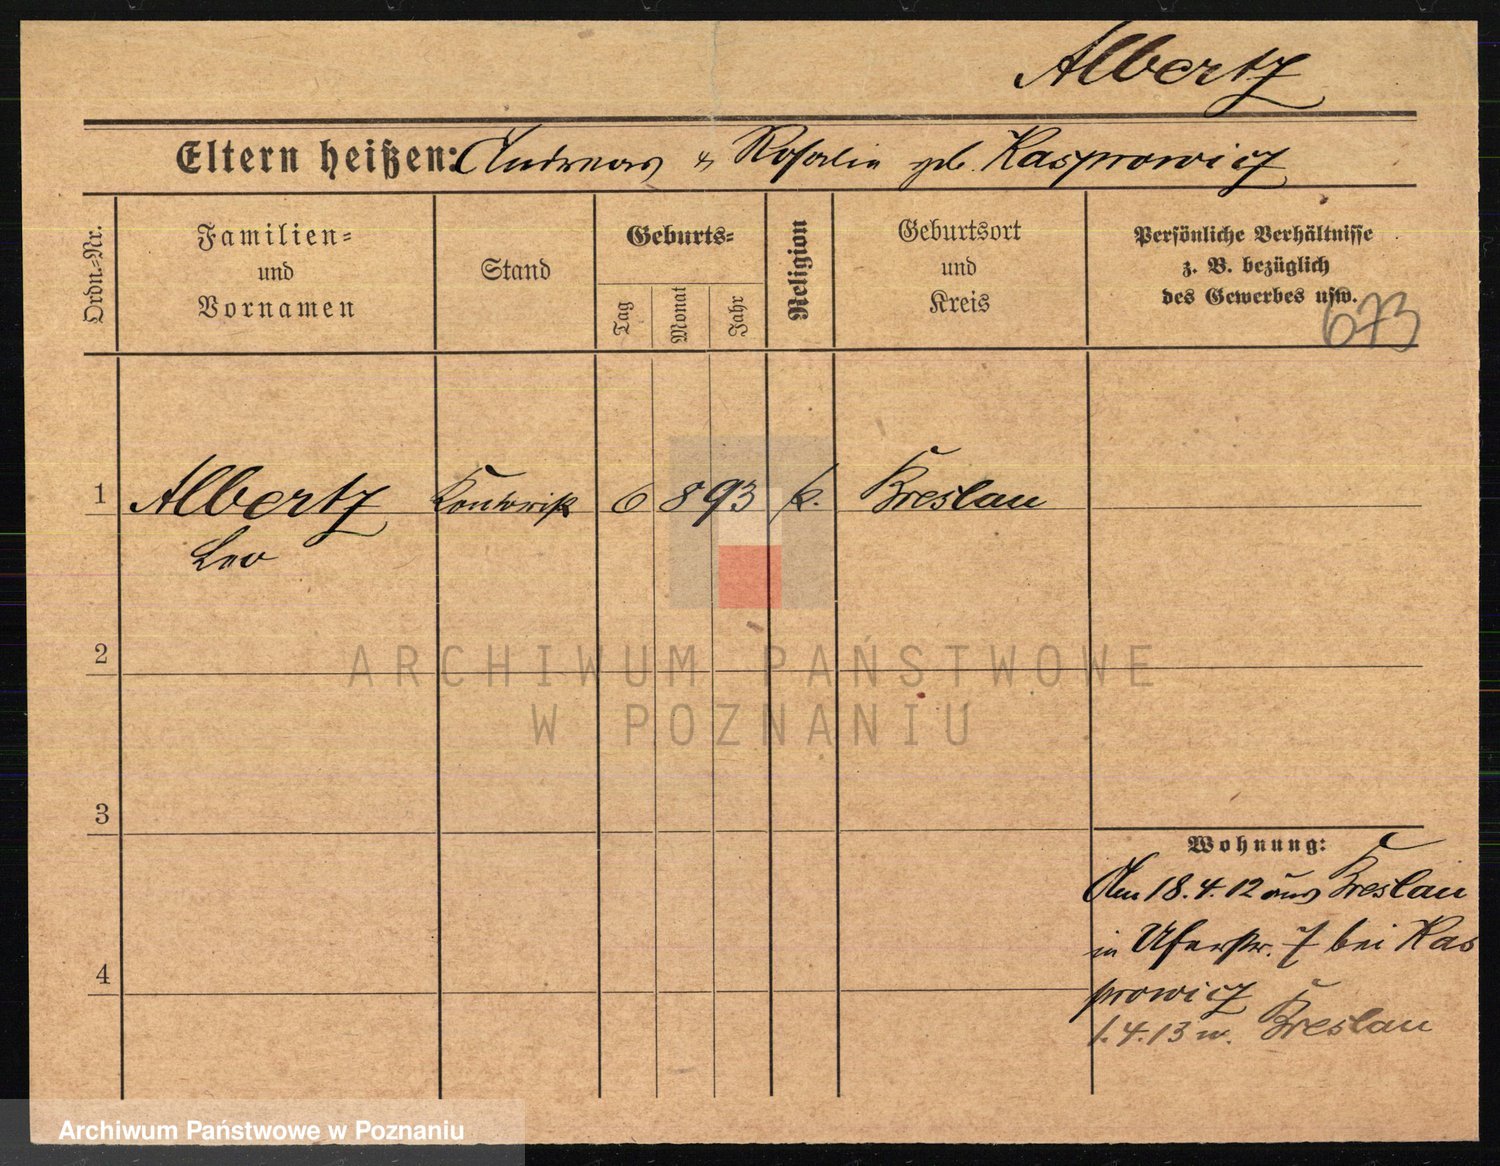 Albertz
Eltern heißen: Andreas & Rosalie geb. Kasprowicz
Ordn.-Nr.
Familien-
und
Vornamen
Stand
Geburts-
Tag
Monat
Jahr
Religion
Geburtsort
und
Kreis
Persönliche Verhältnisse
z. B. bezüglich
des Gewerbes usw.
673
1 Albertz 6 8 93 k. Breslau
Leo
2
ARCHIWUM PAŃSTWOWE
W POZNANIU
3
Wohnung:
Am 18.4.12 aus Breslau
in Uferstr. 7 bei Kas
4
prowicz
1.4.13 n. Breslau
Archiwum Państwowe w Poznaniu